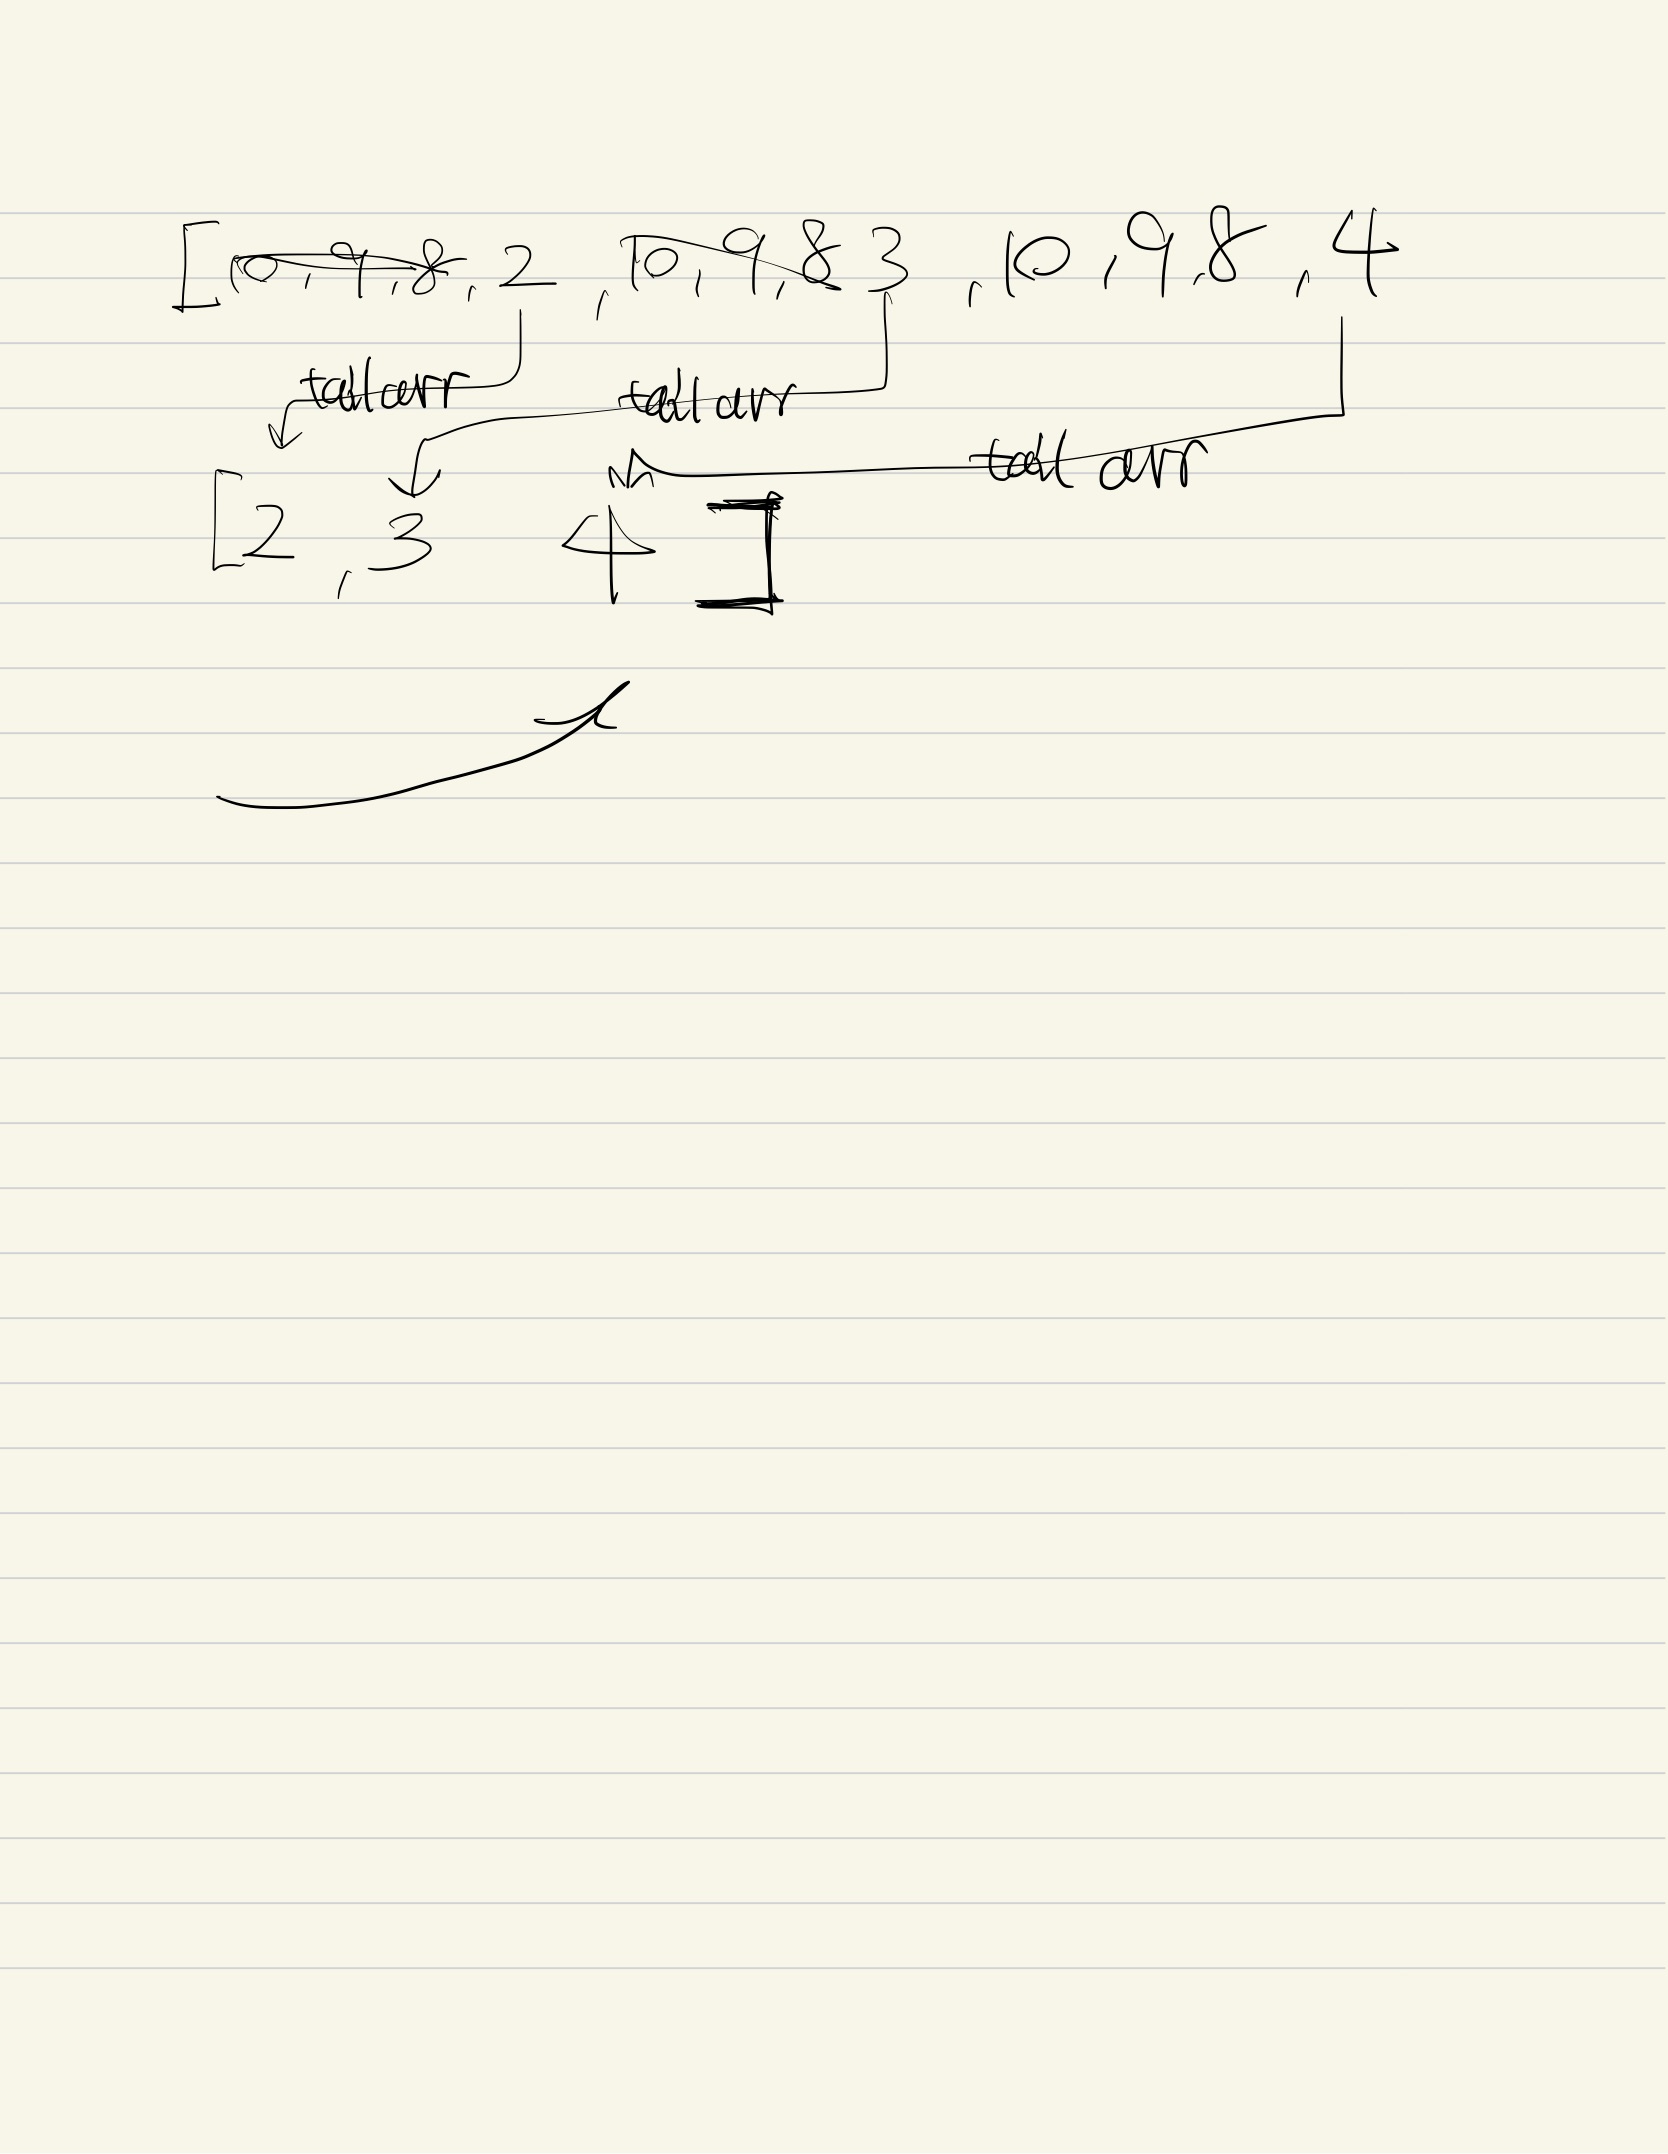 [10, 9, 8, 2, 10, 9, 8 3, 10, 9, 8, 4
tail arr tail arr
tail arr
[2, 3 4]